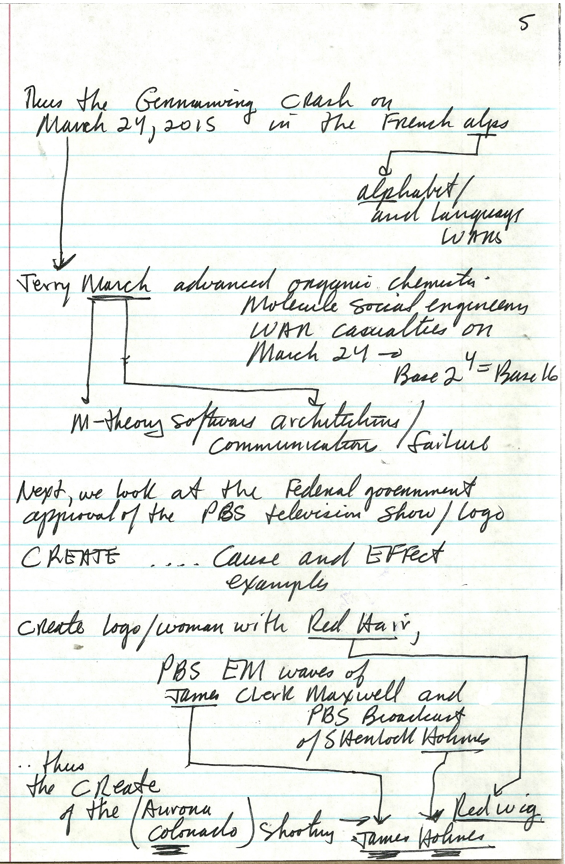 5
Thus the Germanwing crash on
March 24, 2015 in the French alps
alphabet/
and language
WARS
Jerry March advanced organic chemistr.
Molecule social engineering
WAR casualties on
March 24 →
Base 2⁴ = Base 16
M-theory software architecture/
communication/failure
Next, we look at the Federal government
approval of the PBS television show/logo
CREATE ..... Cause and EFFect
examples
Create logo/woman with Red Hair,
PBS EM waves of
James Clerk Maxwell and
PBS Broadcast
of SHerlock Holmes
.. thus
the CREATE
of the (Aurora
Colorado) Shooting → James Holmes
Red wig.